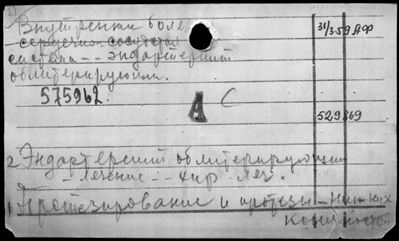 Внутренни боле
31/3-59 АФ
сердечно-сосудист
система -- эндартериит
облитерирующий.
575962.
А С
529869
2 Эндартериит облитерирующий
- лечение -- хир. леч.
1 Протезирование и протезы - нижних
конечност